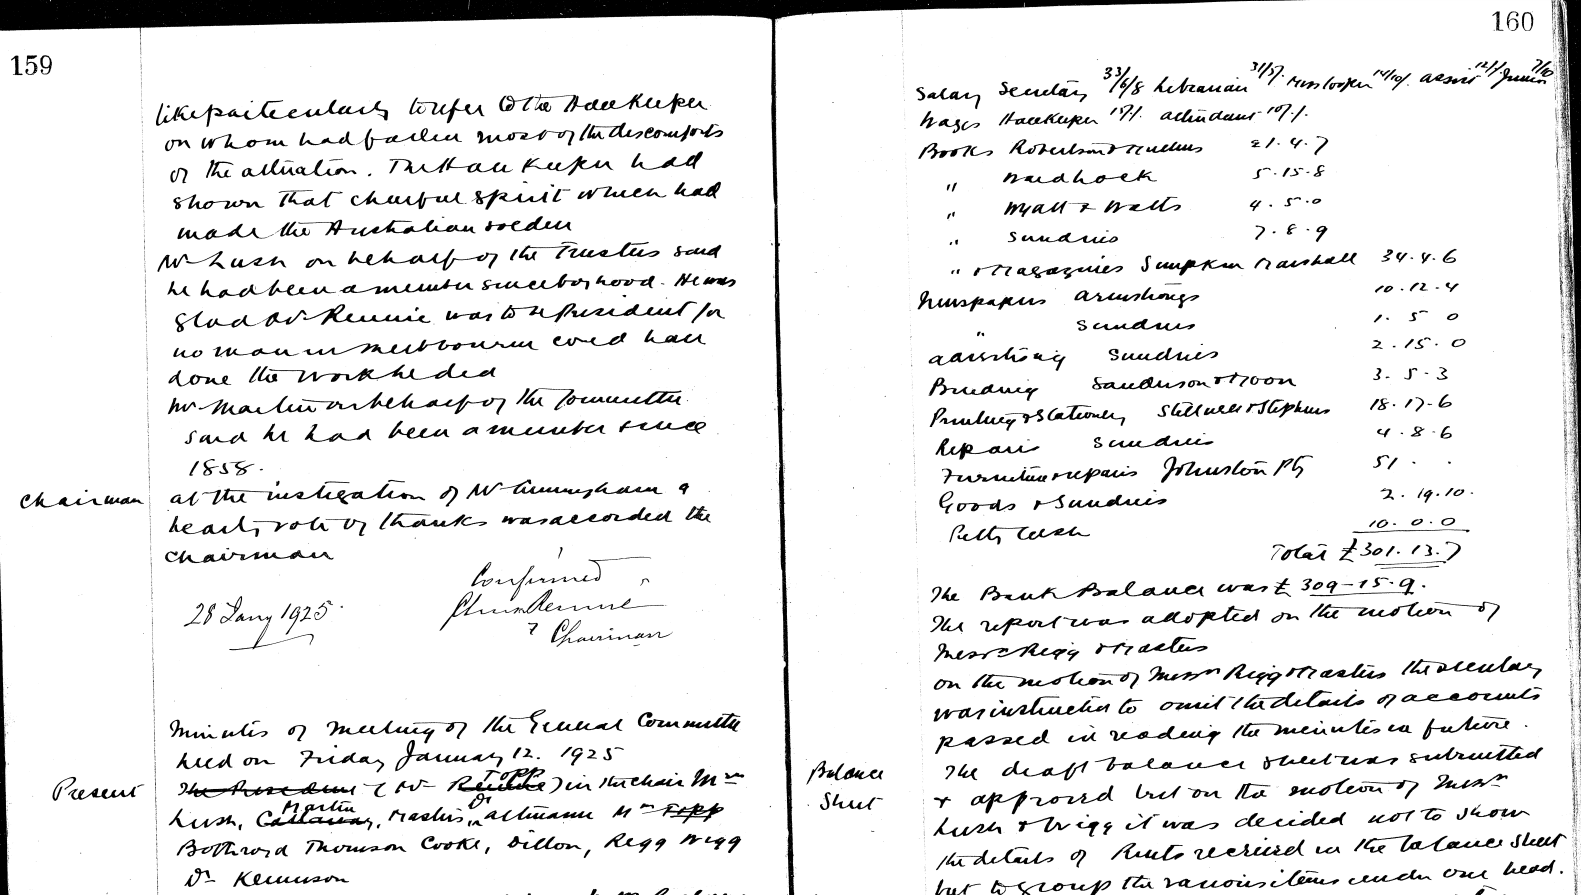 159
like particularly to refer to the Hall Keeper
on whom had fallen most of the discomforts
of the situation. The Hall Keeper had
shown that cheerful spirit which had
made the Australian soldier
Mr Lush on behalf of the Trustees said
he had been a member since boyhood. He was
glad Dr Rennie was to be President for
no man in Melbourne could have
done the work he did
Mr Martin on behalf of the Committee
said he had been a member since
1858.
Chairman
at the instigation of Mr Cunningham a
hearty vote of thanks was accorded the
Chairman
Confirmed
28 Jany 1925
Rennie
Chairman
Minutes of meeting of the General Committee
held on Friday January 12. 1925
Present
The President (Mr Topp) in the chair Mrs
Lush, Callaway, Martin, Masters, Dr Altmann Mrs Topp
Bothroyd Thomson Cooke, Dillon, Rigg Wigg
Dr
160
Salary Secretary 33/6/8 Librarian 31/5/. Miss Cooper 14/10/. assist 12/./. Junior 7/10
Wages Hallkeeper attendant
Books Robertson & Mullens 21.4.7
" 5.15.8
" Wyatt & Watts 4.5.0
" Sundries 7.8.9
" & Magazines Simpkin Marshall 34.4.6
Newspapers Armstrongs 10.12.4
" Sundries 1. 5 0
Advertising Sundries 2.15.0
Binding Sanderson & Moon 3.5.3
Printing & Stationery Stillwell & Stephens 18.17.6
Repairs Sundries 4.8.6
Furniture repairs Johnston Pty 51 . .
Goods & Sundries 2.19.10.
Petty Cash 10.0.0
Total £301.13.7
The Bank Balance was £309-15.9.
The report was adopted on the motion of
Messrs Rigg & Masters
On the motion of Messrs Rigg & Masters the secretary
was instructed to omit the details of accounts
passed in reading the minutes in future.
Balance Sheet
The draft balance sheet was submitted
& approved but on the motion of Messrs
Lush & Wigg it was decided not to show
the details of Rents received in the balance sheet
but to group the various items under one head.